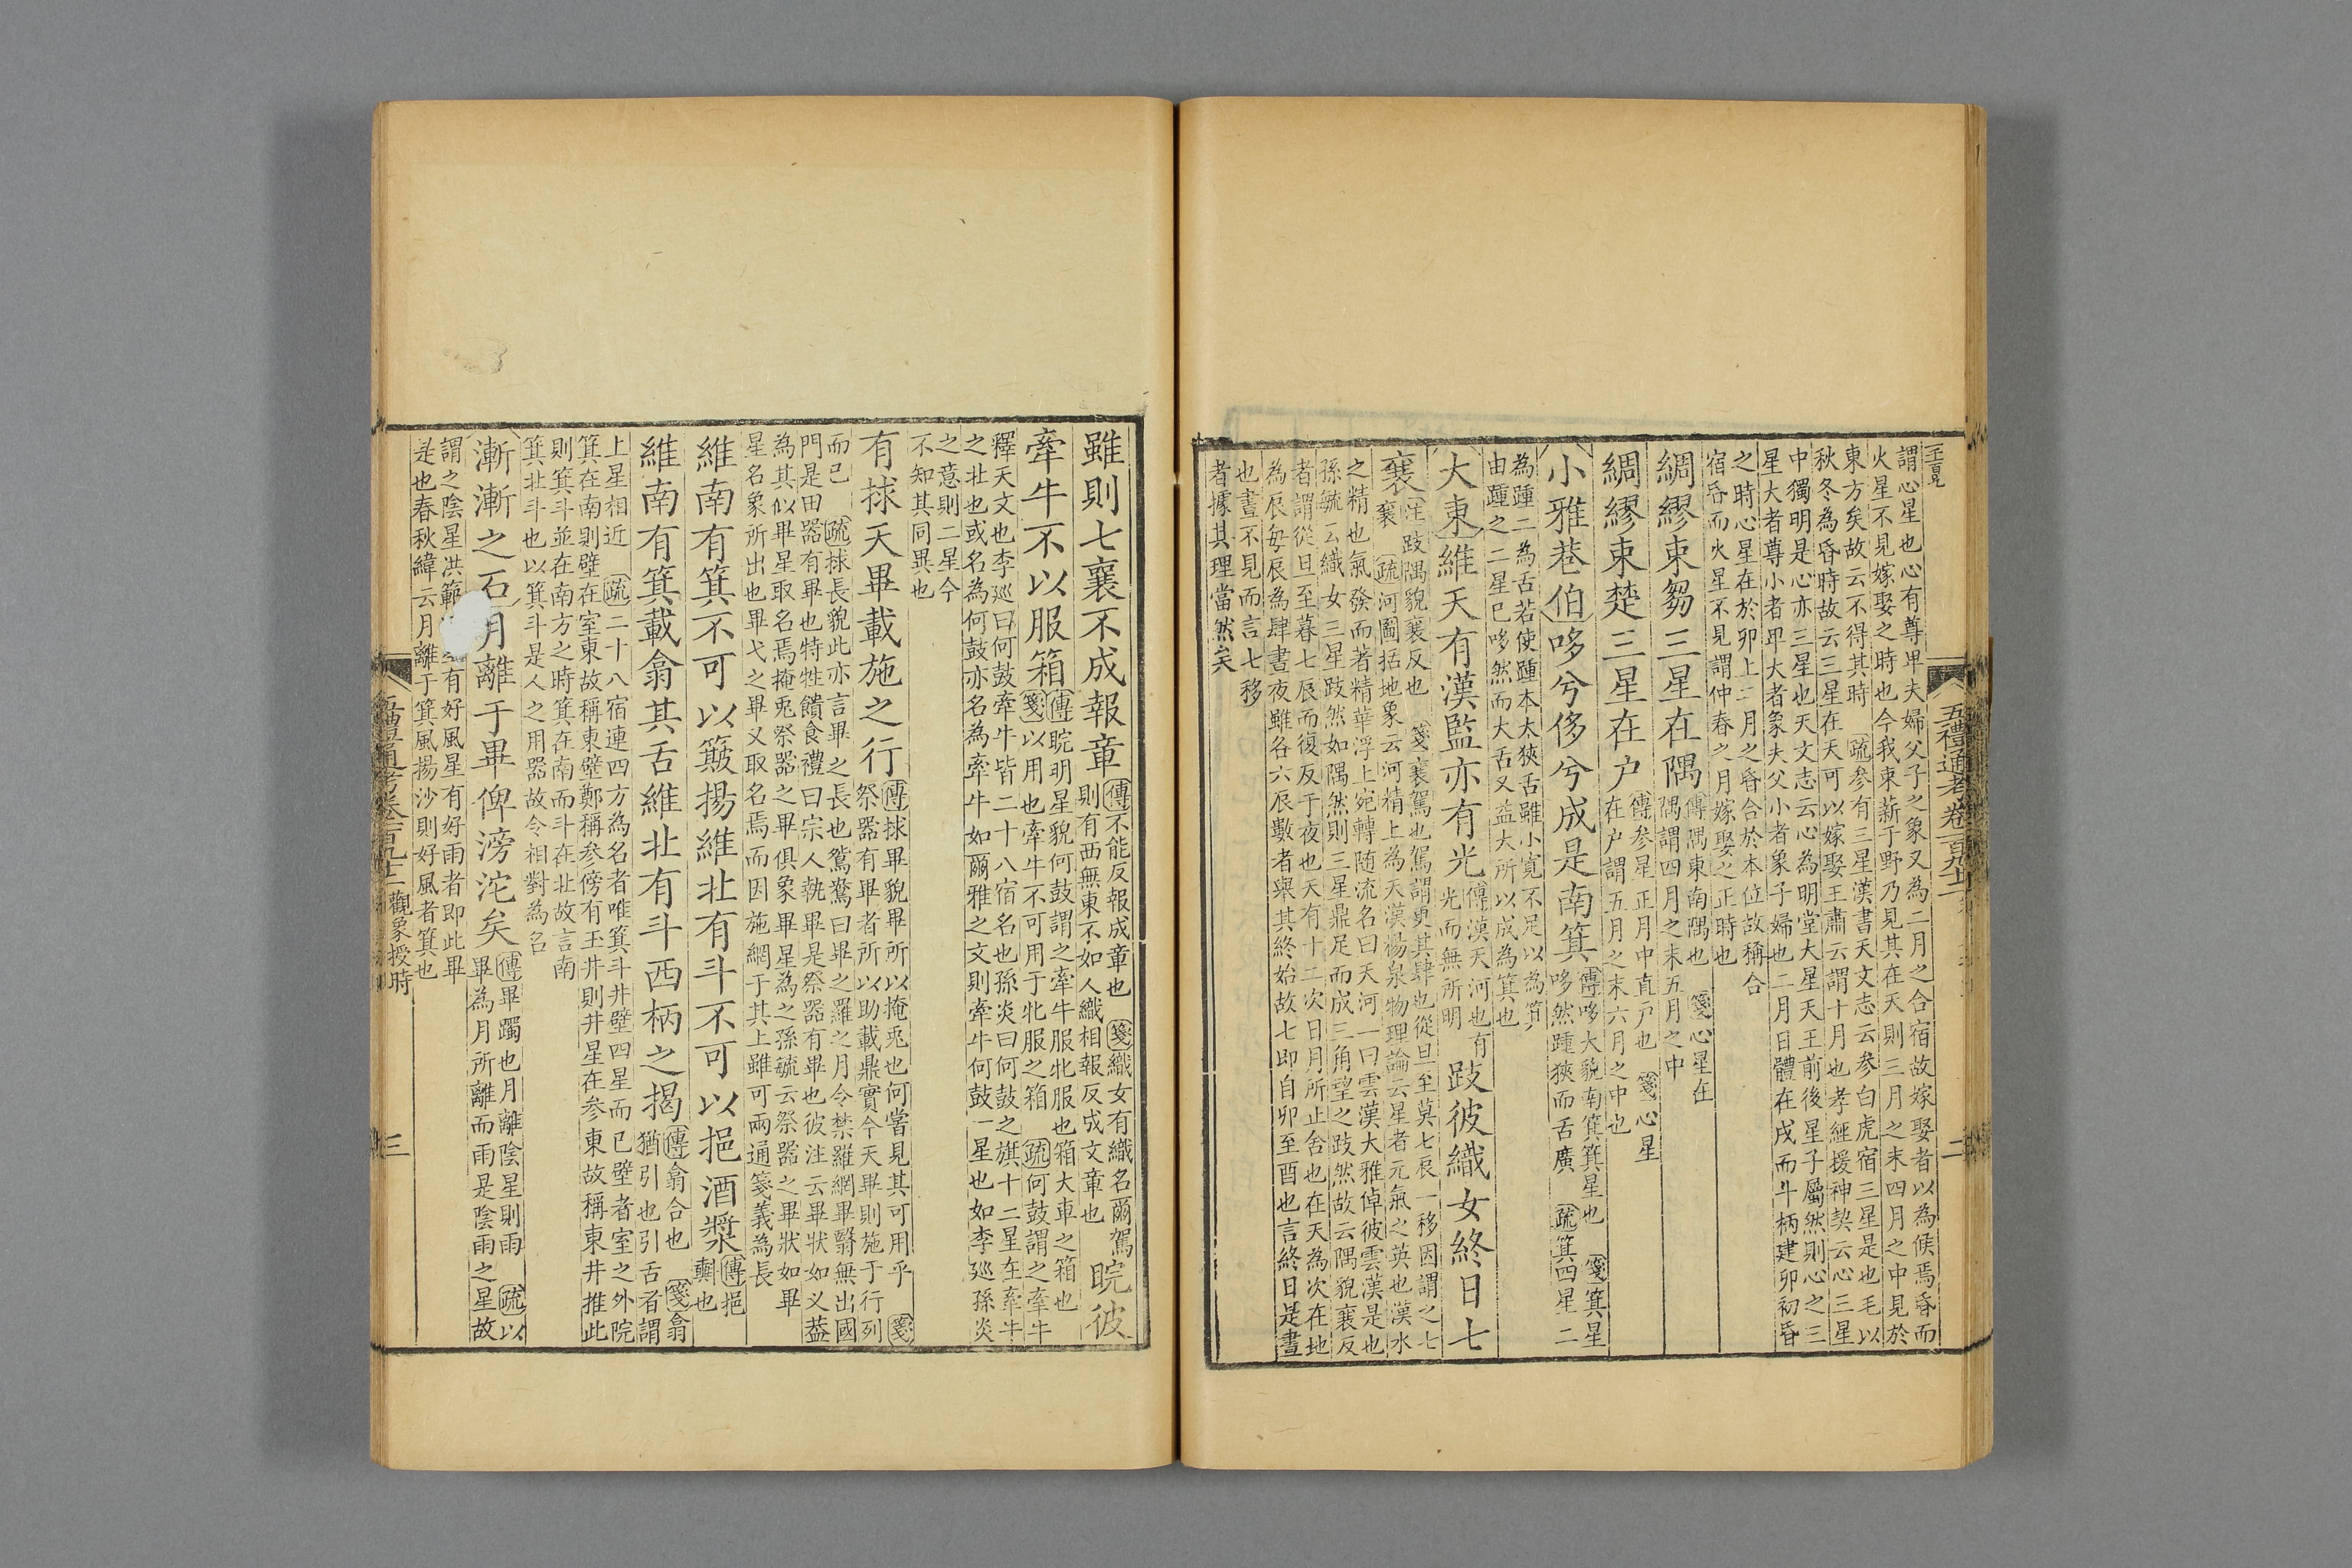 謂心星也心有尊卑夫婦父子之象又為二月之合宿故嫁娶者以為候焉昏而
火星不見嫁娶之時也今我束薪于野乃見其在天則三月之末四月之中見於
東方矣故云不得其時疏參有三星漢書天文志云參白虎宿三星是也毛以
秋冬為昏時故云三星在天可以嫁娶王肅云謂十月也孝經援神契云心三星
中獨明是心亦三星也天文志云心為明堂大星天王前後星子屬然則心之三
星大者尊小者卑大者象夫父小者象子婦也二月日體在戌而斗柄建卯初昏
之時心星在於卯上二月之昏合於本位故稱合
宿昏而火星不見謂仲春之月嫁娶之正時也
綢繆束芻三星在隅
傳隅東南隅也箋心星在
隅謂四月之末五月之中
綢繆束楚三星在户
傳參星正月中直户也箋心星
在户謂五月之末六月之中也
小雅巷伯哆兮侈兮成是南箕
傳哆大貌南箕箕星也箋箕星
哆然踵狹而舌廣疏箕四星二
為踵二為舌若使踵本太狹舌雖小寬不足以為箕
由踵之二星已哆然而大舌又益大所以成為箕也
大東維天有漢監亦有光
傳漢天河也有
光而無所明
跂彼織女終日七
襄
注跂隅貌襄反也箋襄駕也駕謂更其肆也從旦至莫七辰一移因謂之七
襄疏河圖括地象云河精上為天漢楊泉物理論云星者元氣之英也漢水
之精也氣發而著精華浮上宛轉隨流名曰天河一曰雲漢大雅倬彼雲漢是也
孫毓云織女三星跂然如隅然則三星鼎足而成三角望之跂然故云隅貌襄反
者謂從旦至暮七辰而復反于夜也天有十二次日月所止舍也在天為次在地
為辰每辰為肆晝夜雖各六辰數者舉其終始故七即自卯至酉也言終日是晝
也晝不見而言七移
者據其理當然矣
五禮通考卷一百九十二
二
雖則七襄不成報章
傳不能反報成章也箋織女有織名爾駕
則有西無東不如人織相報反成文章也
睆彼
牽牛不以服箱
傳睆明星貌何鼓謂之牽牛服牝服也箱大車之箱也
箋以用也牽牛不可用于牝服之箱疏何鼓謂之牽牛
釋天文也李廵曰何鼓牽牛皆二十八宿名也孫炎曰何鼓之旗十二星在牽牛
之北也或名為何鼓亦名為牽牛如爾雅之文則牽牛何鼓一星也如李廵孫炎
之意則二星今
不知其同異也
有捄天畢載施之行
傳捄畢貌畢所以掩兎也何嘗見其可用乎箋
祭器有畢者所以助載鼎實今天畢則施于行列
而已疏捄長貌此亦言畢之長也鴛鴦曰畢之羅之月令禁羅網畢翳無出國
門是田器有畢也特牲饋食禮曰宗人執畢是祭器有畢也彼注云畢狀如义葢
為其似畢星取名焉掩兎祭器之畢俱象畢星為之孫毓云祭器之畢狀如畢
星名象所出也畢弋之畢又取名焉而因施網于其上雖可兩通箋義為長
維南有箕不可以簸揚維北有斗不可以挹酒漿
傳挹
㪺也
維南有箕載翕其舌維北有斗西柄之揭
傳翕合也箋翕
猶引也引舌者謂
上星相近疏二十八宿連四方為名者唯箕斗井壁四星而已壁者室之外院
箕在南則壁在室東故稱東壁鄭稱參傍有玉井則井星在參東故稱東井推此
則箕斗並在南方之時箕在南而斗在北故言南
箕北斗也以箕斗是人之用器故令相對為名
漸漸之石月離于畢俾滂沱矣
傳畢躅也月離陰星則雨疏以
畢為月所離而雨是陰雨之星故
謂之陰星洪範有好風星有好雨者即此畢
是也春秋緯云月離于箕風揚沙則好風者箕也
五禮通考卷一百九十二觀象授時
三